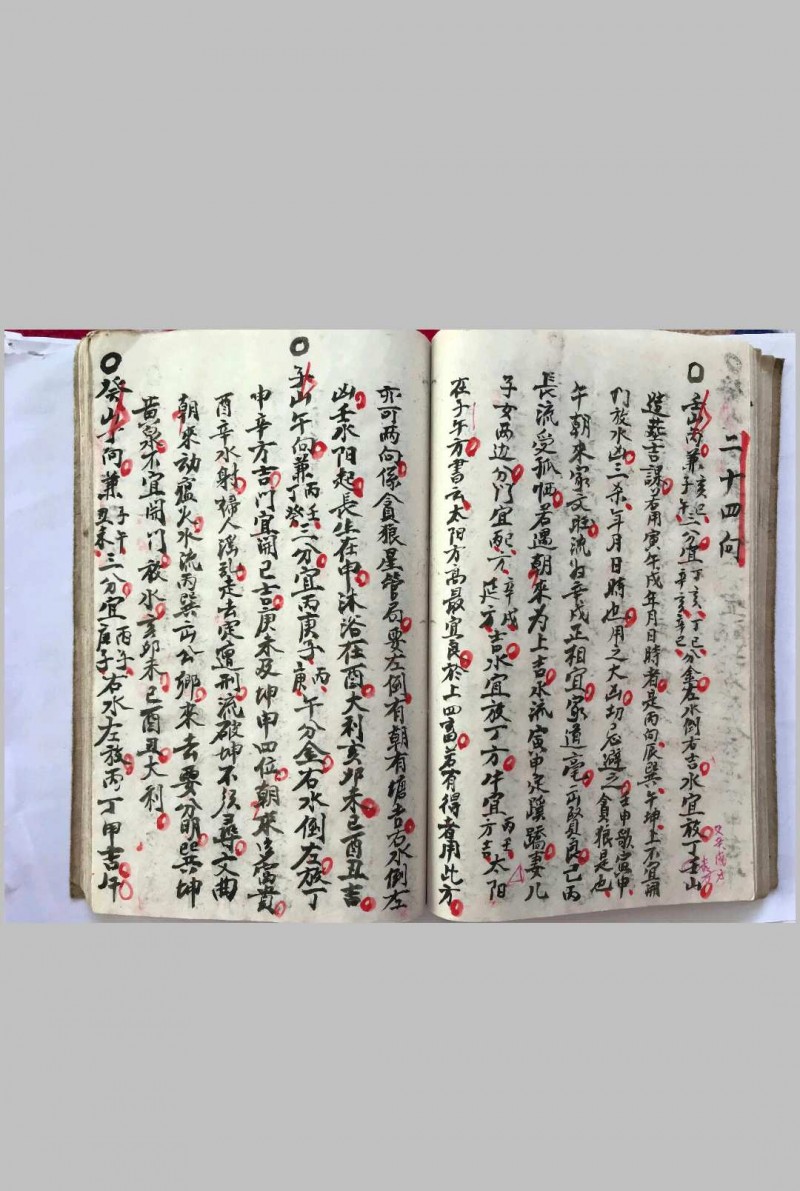 二十四向
壬山丙兼子午亥巳三分宜丁亥丁巳辛亥辛巳分金左水倒右吉水宜放丁壬山
造葬吉課若用寅午戌年月日時者是丙向辰巽午坤上不宜開
門放水凶三杀年月日時也用之大凶切忌避之壬申寅申貪狼是也
午朝来家文旺流归辛戌正相宜家道亳賢良己丙
長流受孤恓若遇朝來为上吉水流寅申定蹊蹺妻儿
子女两边分门宜配方辛戌方吉水宜放丁方牛宜丙壬方吉太阳
在子午方書云太阳方高最宜良於上四畜若有得者用此方
亦可两向係貪狼星管局要左倒有朝有塘吉右水倒左
凶壬水阳起長生在申沐浴在酉大利亥卯未巳酉丑吉
子山午向兼丙壬丁癸三分宜丙庚子丙庚午分金右水倒左放丁
申辛方吉门宜開已吉庚未及坤申四位朝来富貴
酉辛水射婦人淫乱走去定遭刑流破坤不須尋文曲
朝來动瘟火水流丙巽出公卿來去要分明巽坤
黄泉不宜開門放水亥卯未巳酉丑大利
癸山丁向兼子午丑未三分宜丙子庚子右水左放丙丁甲吉午